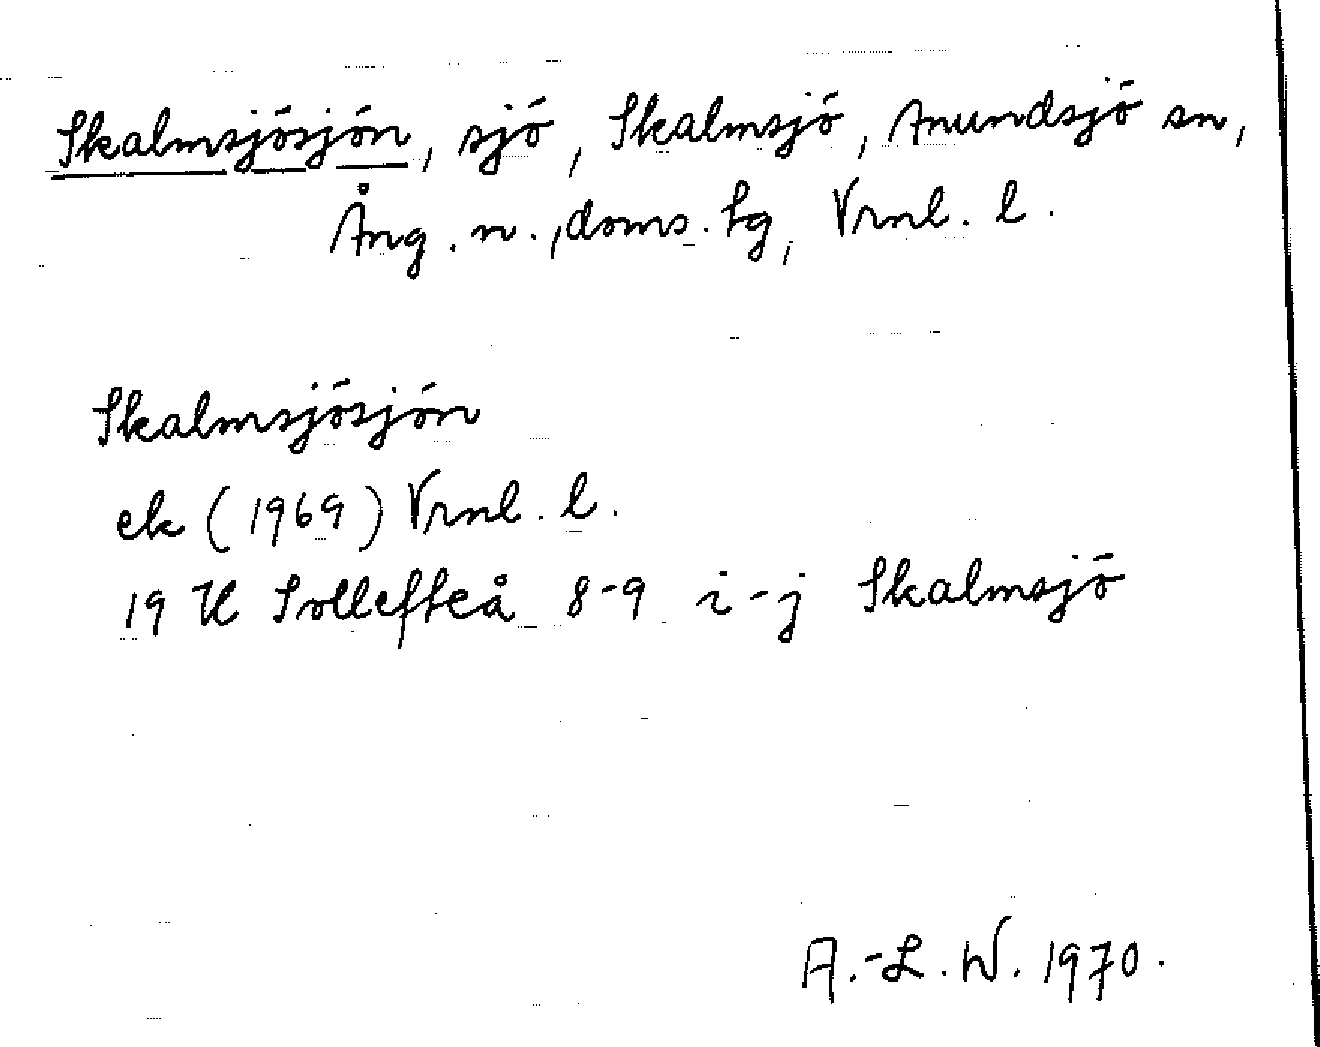 Skalmsjösjön, sjö, Skalmsjö, Anundsjö sn,
Ång. n., doms. hg, Vrnl. l.
Skalmsjösjön
ek (1969) Vrnl. l.
19 H Sollefteå 8-9 i-j Skalmsjö
A.-L. W. 1970.